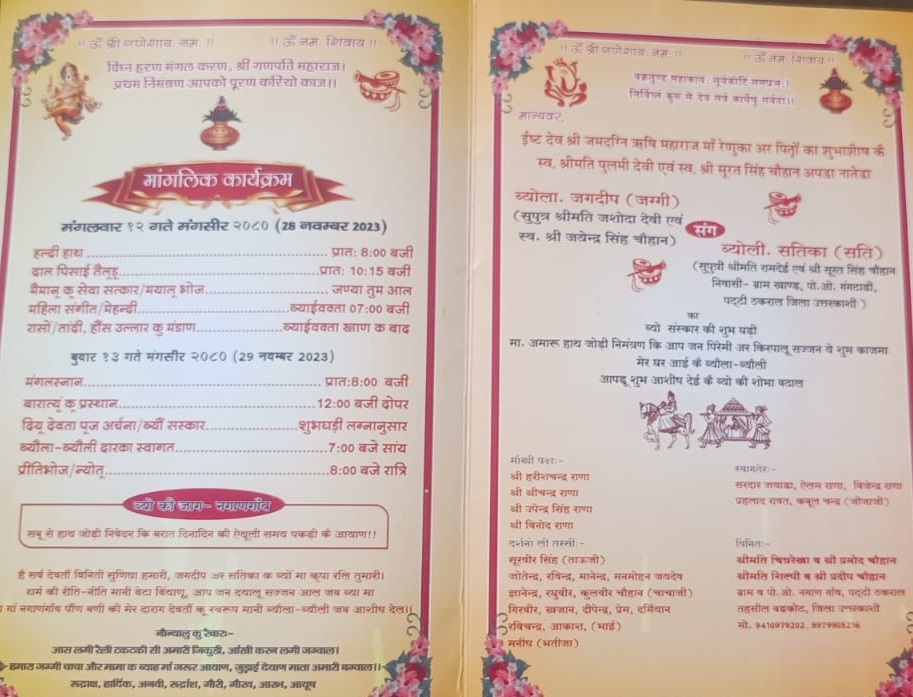 !! ॐ श्री गणेशायः नमः !!
!! ॐ नमः शिवाय !!
विघ्न हरण मंगल करण, श्री गणपति महाराज।
प्रथम निमंत्रण आपको पूरण करियो काज।।
मांगलिक कार्यक्रम
मंगलवार १२ गते मंगसीर २०८० (28 नवम्बर 2023)
हल्दी हाथ ........ प्रातः 8:00 बजी
दाल पिसाई तैलूड़ ........ प्रातः 10:15 बजी
मैमानू कू सेवा सत्कार/मयालू भोज ........ जण्या तुम आल
महिला संगीत/मेहन्दी ........ ब्याईवक्ता 07:00 बजी
रासों/तांदी, हौंस उल्लार कु मंडाण ........ ब्याईवक्ता खाण क बाद
बुधवार १३ गते मंगसीर २०८० (29 नवम्बर 2023)
मंगलस्नान ........ प्रातः8:00 बजी
बारात्यूं कू प्रस्थान ........ 12:00 बजी दोपर
दियू देवता पूज अर्चना/ब्यौं संस्कार ........ शुभघड़ी लग्नानुसार
ब्यौला-ब्यौली दारका स्वागत ........ 7:00 बजे सांय
प्रीतिभोज/न्योतू ........ 8:00 बजे रात्रि
ब्यो की जाग- नगाणगाँव
सबू से हाथ जोड़ी निवेदन कि बरात दिनादिन की ऐथूली समय पकड़ी कै आयाण!!
है सर्व देवतौं विनिती सुणिया हमारी, जगदीप अर सतिका क ब्यों मा कृपा रलि तुमारी।
धर्म की रीति-नीति मानी बेटा बिवाणू, आप जन दयालू सज्जन आल जब ब्या मा
गां नगाणगाँव पौंण बणी की मेर दाराग देवतौं कू स्वरूप मानी ब्यौला-ब्यौली जब आशीष देल।।
नौन्यालु कु रैबारः-
आस लगी रैली टकटकी सी अमारी जिकुड़ी, आँखी करन लगी जग्वाल।
हमारा जग्गी चाचा और मामा क ब्याह मां जरूर आयाण, जुझई देयाण माता अमारी बग्वाल।।
रुद्राक्ष, हार्दिक, अनवी, रूद्रांश, गौरी, गौरव, आरभ, आयुष
!! ॐ श्री गणेशायः नमः !!
!! ॐ नमः शिवाय !!
वक्रतुण्ड महाकाय: सूर्यकोटि समप्रभ:।
निर्विघ्नं कुरू मे देव सर्व कार्येषु सर्वदा।।
मान्यवर,
ईष्ट देव श्री जमदग्नि ऋषि महाराज माँ रेणुका अर पितृों का शुभाशीष कै
स्व. श्रीमति पुलमी देवी एवं स्व. श्री सूरत सिंह चौहान अपडा नातेड़ा
ब्योला. जगदीप (जग्गी)
(सुपुत्र श्रीमति जशोदा देवी एवं
स्व. श्री जयेन्द्र सिंह चौहान)
संग
ब्योली. सतिका (सति)
(सुपुत्री श्रीमति रामदेई एवं श्री सूरत सिंह चौहान
निवासी- ग्राम खाण्ड, पो.ओ. गंगटाडी,
पट्टी ठकराल जिला उत्तरकाशी )
का
ब्यो संस्कार की शुभ घड़ी
मा. अमारू हाथ जोड़ी निमंत्रण कि आप जन पिरेमी अर किरपालू सज्जन ये शुभ काजमा
मेर घर आई कै ब्यौला-ब्यौली
आपडू शुभ आशीष देई कै ब्यो की शोभा बठाल
माँखी पक्षः-
श्री हरीशचन्द्र राणा
श्री श्रीचन्द्र राणा
श्री उपेन्द्र सिंह राणा
श्री विनोद राणा
दर्शनो ली तरसीः-
सूरवीर सिंह (ताऊजी)
जोतेन्द्र, रविन्द्र, मानेन्द्र, मनमोहन जयदेव
ज्ञानेन्द्र, रघुवीर, कुलवीर चौहान (चाचाजी)
गिरवीर, खजान, दीपेन्द्र, प्रेम, दर्मियान
रविचन्द्र, आकाश, (भाई)
मनीष (भतीजा)
स्वागतेरः-
सरदार जयाडा, ऐलम राणा, विजेन्द्र राणा
प्रहलाद रावत, कबूल चन्द्र (जीजाजी)
विनितः-
श्रीमति चित्ररेखा व श्री प्रमोद चौहान
श्रीमति शिल्पी व श्री प्रदीप चौहान
ग्राम व पो.ओ. नगाण गाँव, पट्टी ठकराल
तहसील बड़कोट, जिला उत्तरकाशी
मो. 9410979202, 8979905216